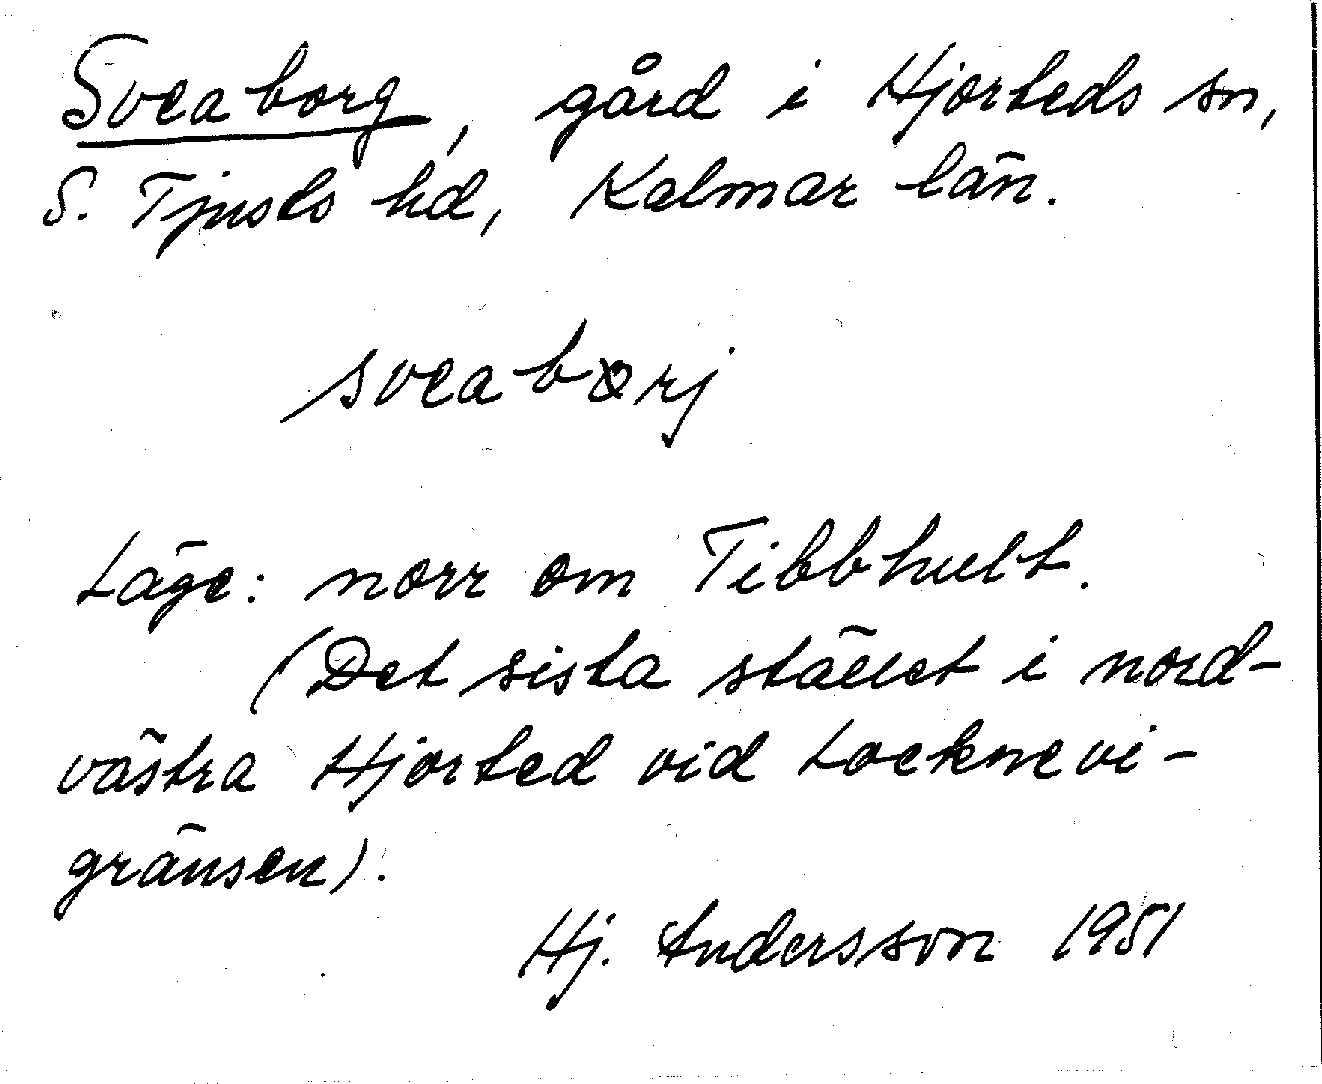 Sveaborg, gård i Hjorteds sn,
S. Tjusts hd, Kalmar län.
sveaborj
Läge: norr om Tibbhult.
(Det sista stället i nord-
västra Hjorted vid Locknevi-
gränsen).
Hj. Andersson 1951